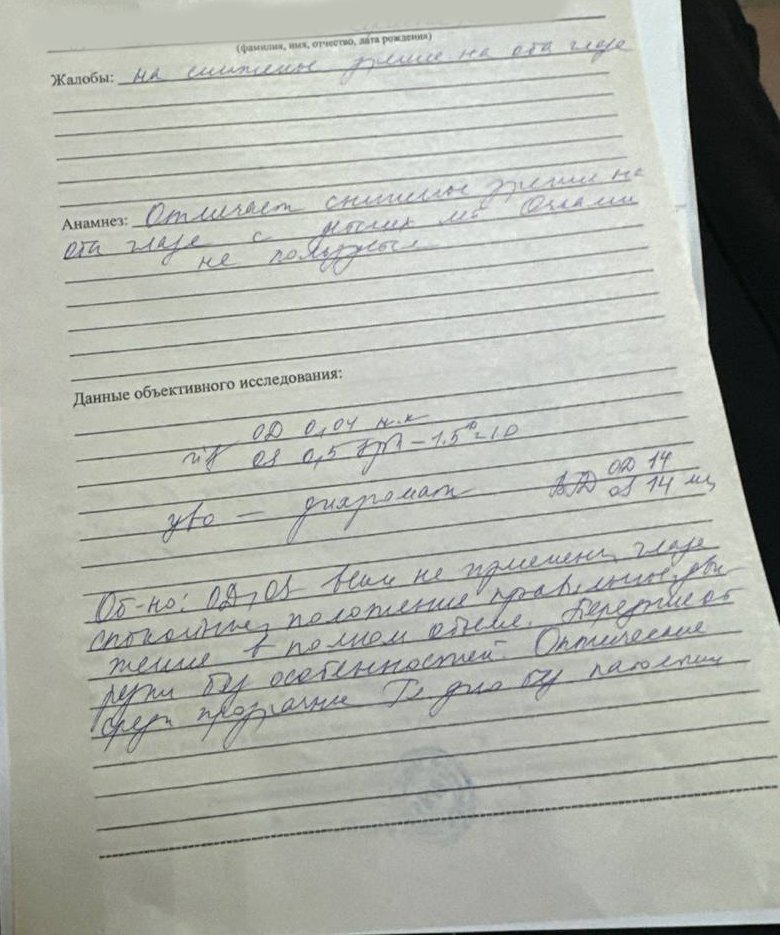 (фамилия, имя, отчество, дата рождения)
Жалобы: на снижение зрение на оба глаза
Анамнез: Отмечает снижение зрения на
оба глаза с Очками
не пользуется
Данные объективного исследования:
OD 0,04 н.к
OS 0,5 - 1.5 = 1.0
дихромат OD 14
OS 14
Об-но: OD, OS веки не изменены, глаза
спокойные, положение правильное, дви
жение в полном объеме. Передние от
резки без особенностей. Оптические
среды прозрачные Гл дно без патологии